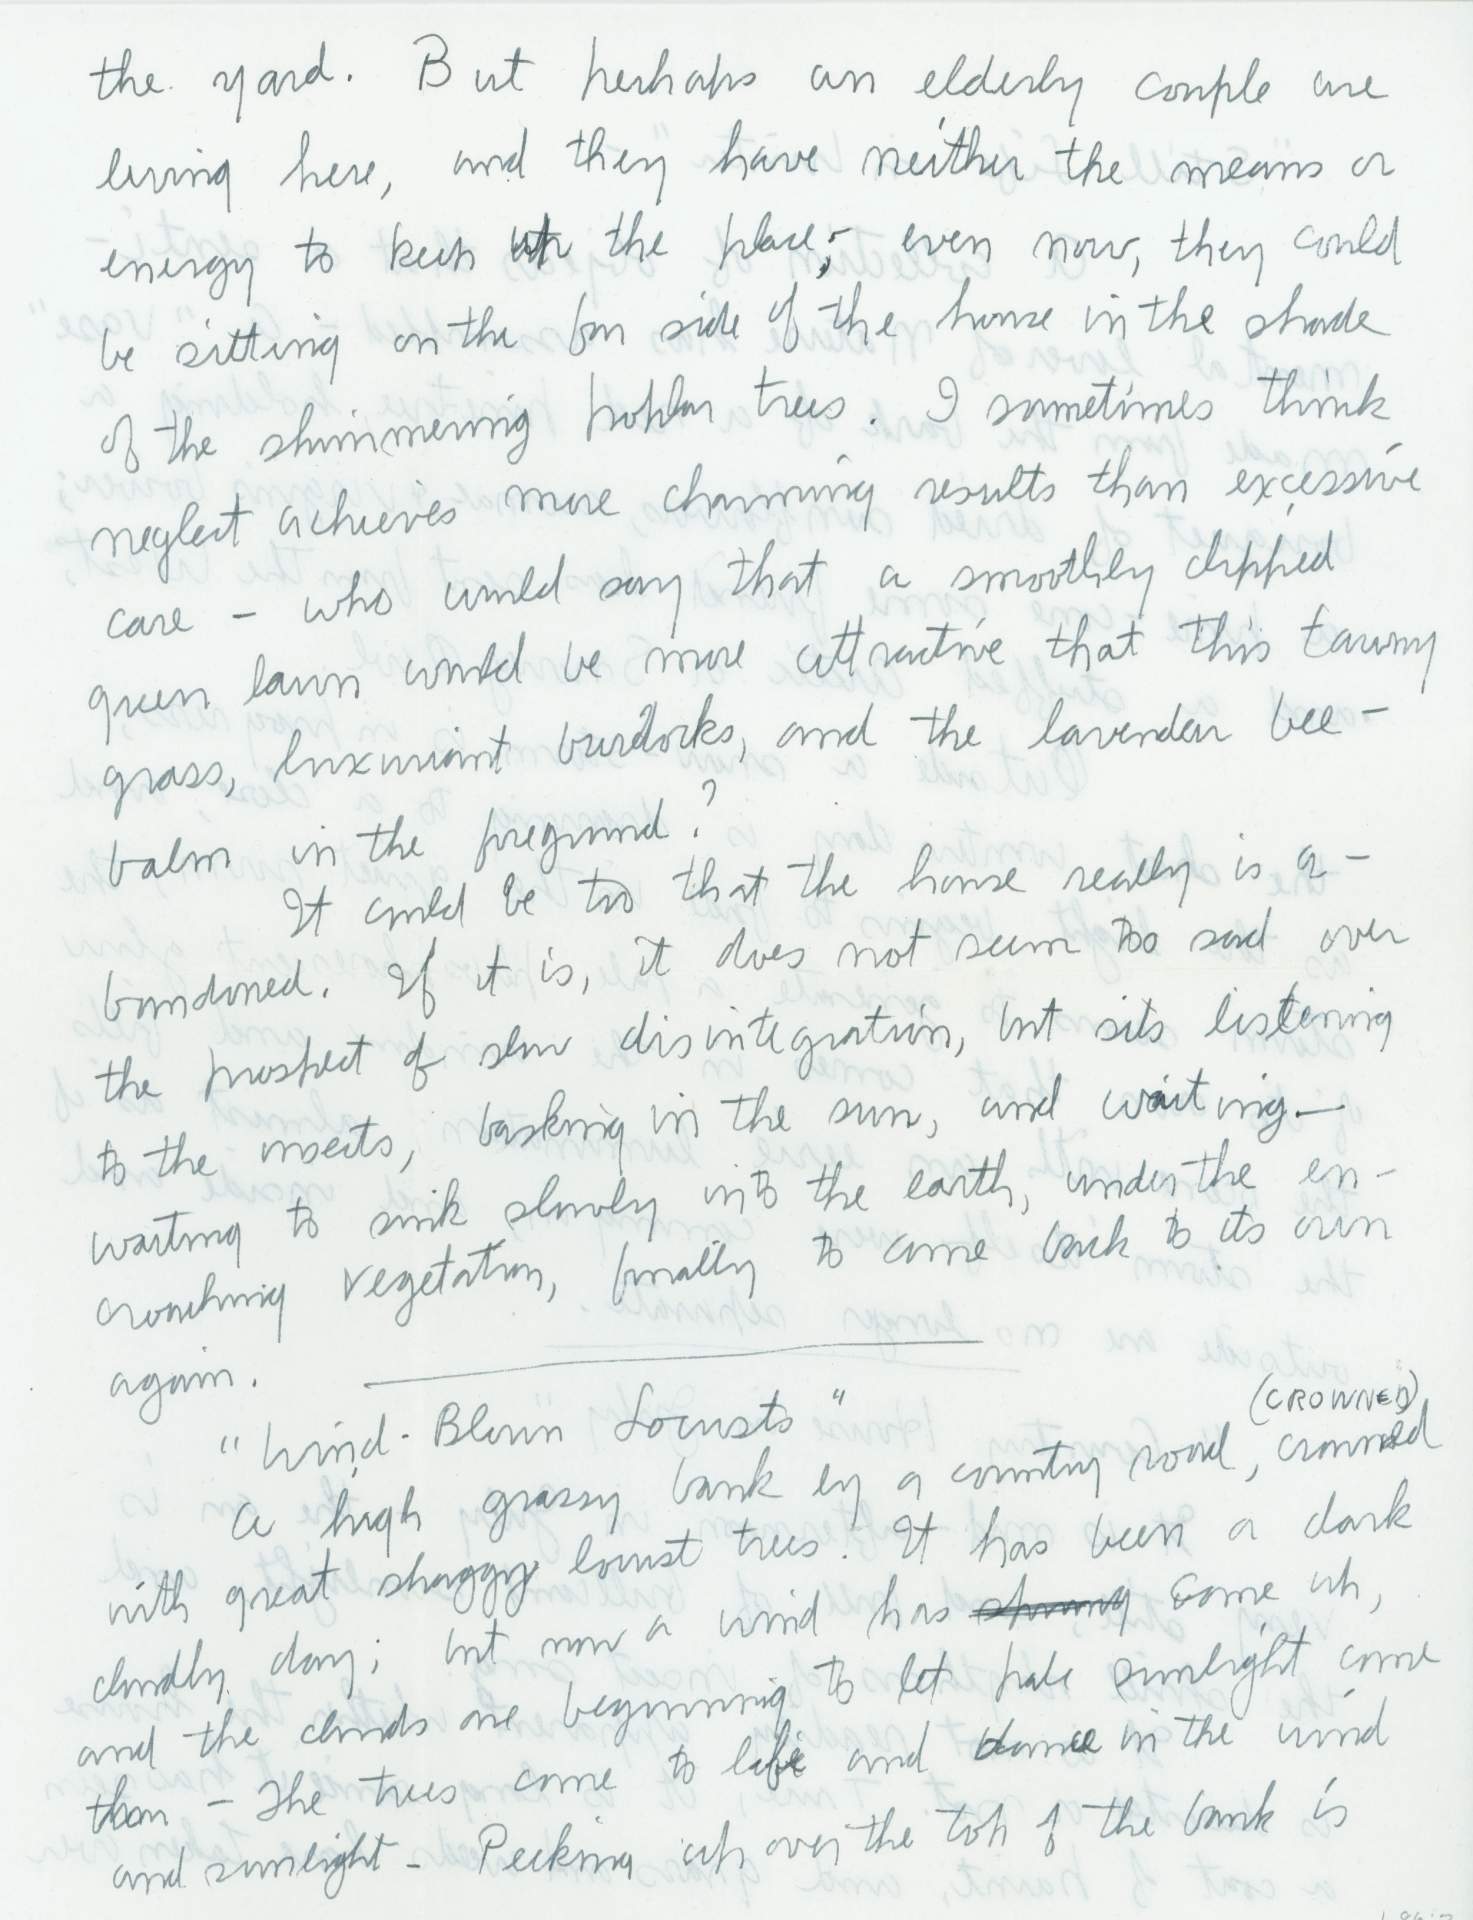 the yard. But perhaps an elderly couple are
living here, and they have neither the means or
energy to keep up the place; even now, they could
be sitting on the far side of the house in the shade
of the shimmering poplar trees. I sometimes think
neglect achieves more charming results than excessive
care – who would say that a smoothly clipped
green lawn would be more attractive that this tawny
grass, luxuriant burdocks, and the lavender bee-
balm in the foreground?
It could be too that the house really is a-
bandoned. If it is, it does not seem too sad over
the prospect of slow disintegration, but sits listening
to the insects, basking in the sun, and waiting—
waiting to sink slowly into the earth, under the en-
croaching vegetation, finally to come back to its own
again.
"Wind-Blown Locusts"
(CROWNED)
A high grassy bank by a country road, crowned
with great shaggy locust trees. It has been a dark
cloudy day; but now a wind has come up,
and the clouds are beginning to let pale sunlight come
thru – The trees come to life and dance in the wind
and sunlight – Peeking up over the top of the bank is